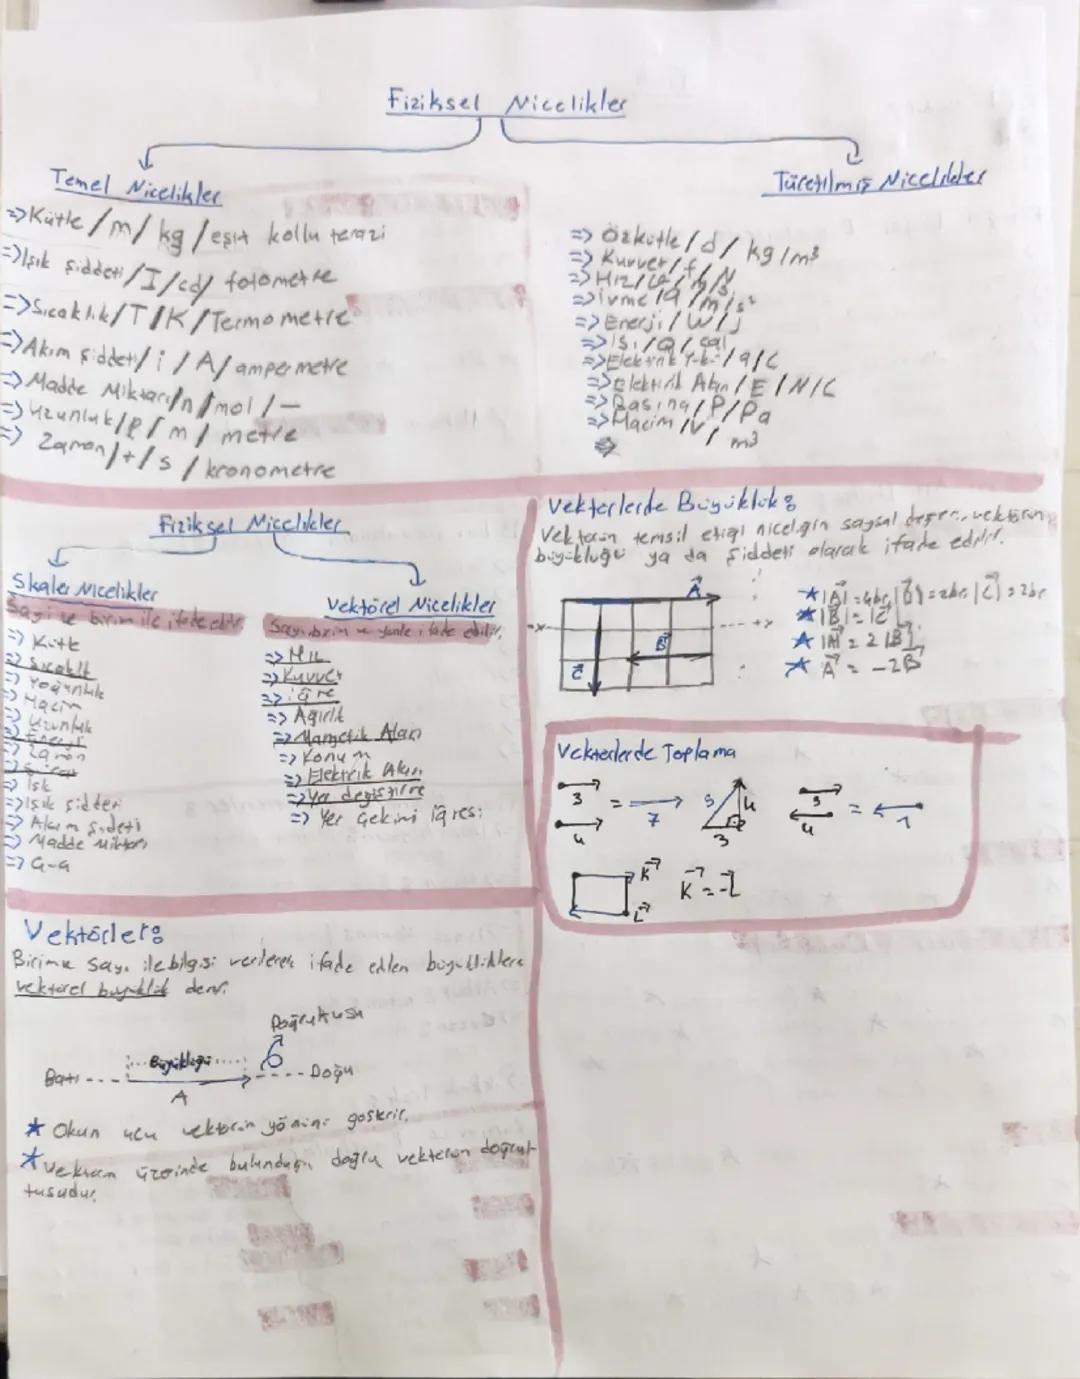 Fiziksel Nicelikler
Temel Nicelikler
=> Kütle / m / kg / eşit kollu terazi
=> Işık şiddeti / I / cd / fotometre
=> Sıcaklık / T / K / Termometre
=> Akım şiddeti / i / A / ampermetre
=> Madde Miktarı / n / mol / —
=> Uzunluk / l / m / metre
=> Zaman / t / s / kronometre
Türetilmiş Nicelikler
=> Özkütle / d / kg/m³
=> Kuvvet / f / N
=> Hız / / m/s
=> ivme / a / m/s²
=> Enerji / W / j
=> Isı / Q / cal
=> Elektrik / q / C
=> Elektirik Alan / E / N/C
=> Basınç / P / Pa
=> Hacim / V / m³
=>
Fiziksel Nicelikler
Skaler Nicelikler
Sayı ve birim ile ifade edilir
=> Kütle
=> Sıcaklık
=> Yoğunluk
=> Hacim
=> Uzunluk
=> Enerji
=> Zaman
=>
=> Isı
=> Işık şiddeti
=> Akım şiddeti
=> Madde Miktarı
=> G-a
Vektörel Nicelikler
Sayı, birim ve yönle ifade edilir.
=> Hız
=> Kuvvet
=>
=> Ağırlık
=> Manyetik Alan
=> Konum
=> Elektrik Alan
=> Yer değiştirme
=> Yer Çekimi
Vektörlerde Büyüklük:
Vektörün temsil ettiği niceliğin sayısal değeri, vektörün
büyüklüğü ya da şiddeti olarak ifade edilir.
A
-x
+x
B
C
|A| = 4br |B| = 2br |C| = 2br
|B| = |C|
|A| = 2|B|
A = -2B
Vektörlerde Toplama
3
4
=
7
5
4
3
3
4
=
1
K
L
K = -L
Vektörler:
Birim ve sayı ile bilgisi verilerek ifade edilen büyüklüklere
vektörel büyüklük denir.
Doğrultusu
Büyüklüğü
Batı
Doğu
A
Okun ucu vektörün yönünü gösterir.
Vektörün üzerinde bulunduğu doğru vektörün doğrul-
tusudur.